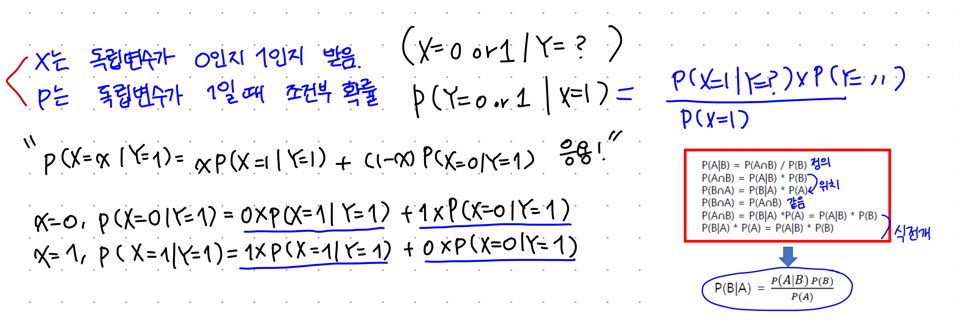 X는 독립변수가 0인지 1인지 받음. (X=0 or 1 | Y=? )
P는 독립변수가 1일 때 조건부 확률 P(Y=0 or 1 | X=1) = P(X=1|Y=?)×P(Y=〃) / P(X=1)
"P(X=x | Y=1) = xP(X=1 | Y=1) + (1-x)P(X=0 | Y=1) 응용!"
x=0, P(X=0 | Y=1) = 0×P(X=1 | Y=1) + 1×P(X=0 | Y=1)
x=1, P(X=1 | Y=1) = 1×P(X=1 | Y=1) + 0×P(X=0 | Y=1)
P(A|B) = P(A∩B) / P(B) 정의
P(A∩B) = P(A|B) * P(B)
P(B∩A) = P(B|A) * P(A) 위치
P(B∩A) = P(A∩B) 같음
P(A∩B) = P(B|A) *P(A) = P(A|B) * P(B)
P(B|A) * P(A) = P(A|B) * P(B) 식전개
P(B|A) = P(A|B) P(B) / P(A)